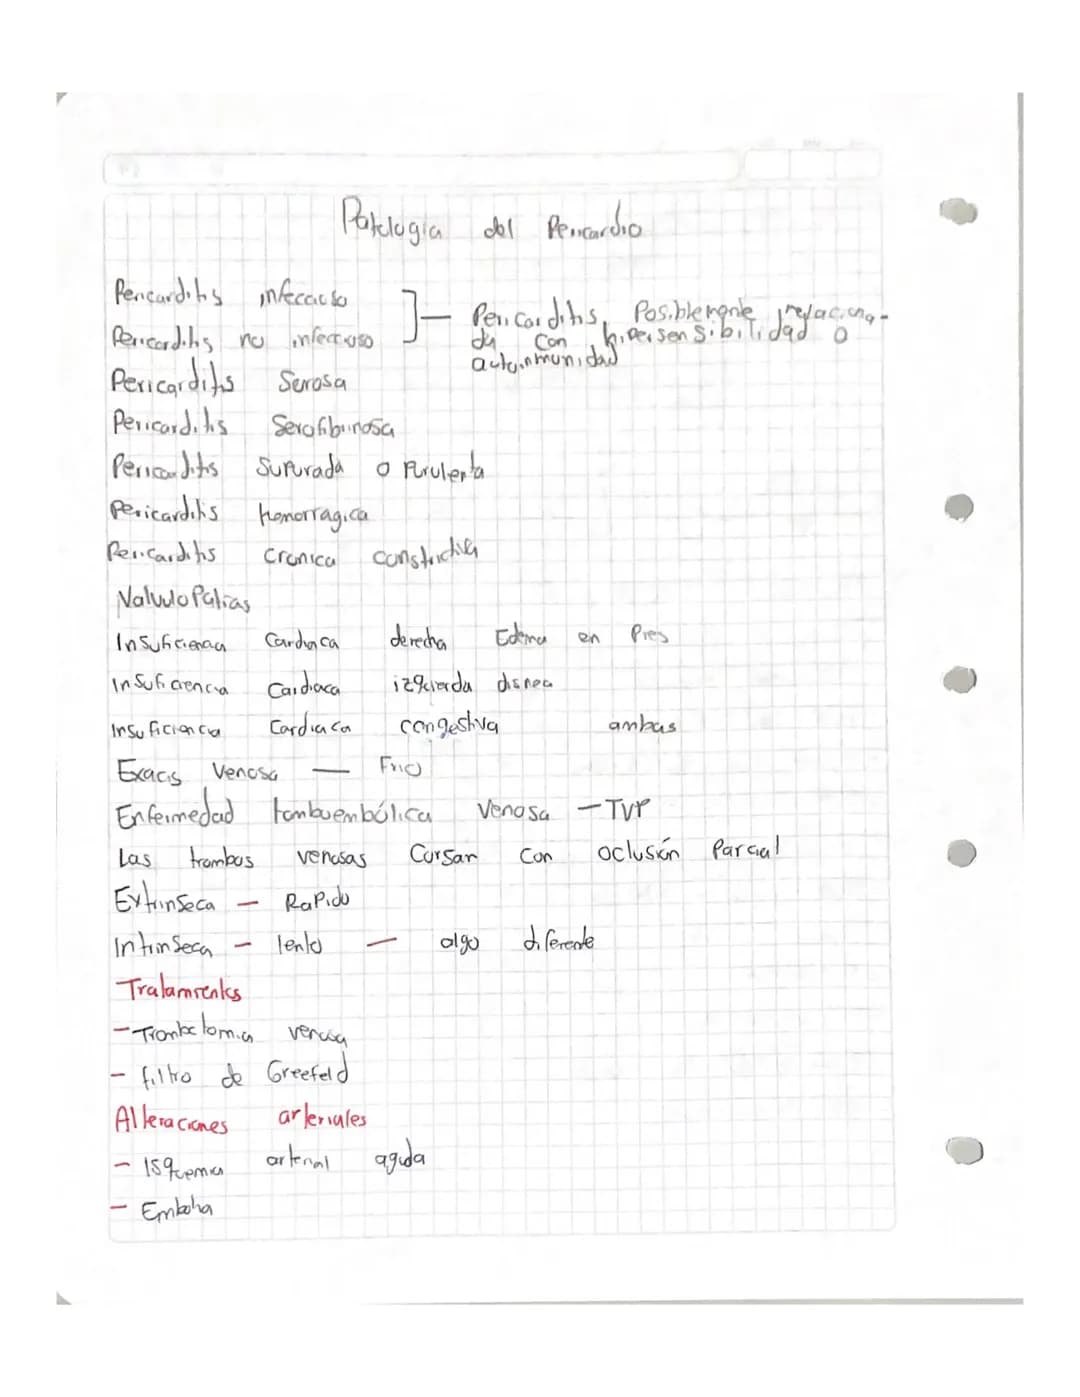 Patologia del Pericardio
Pericarditis infecciosa
Pericarditis no infeccioso
Pericarditis, Posiblemente relaciona-
da con hipersensibilidad o
autoinmunidad
Pericarditis Serosa
Pericarditis Serofibrinosa
Pericarditis Supurada o Purulenta
Pericarditis hemorragica
Pericarditis Cronica constrictiva
ValvuloPatias
Insuficiencia Cardiaca derecha Edema en Pies
Insuficiencia Cardiaca izquierda disnea
Insuficiencia Cardiaca congestiva ambas
Venosa — Frio
Enfermedad tombuembólica Venosa - TVP
Las trombos venosas Cursan Con oclusión Parcial
Extrinseca - Rapido
Intrinseca - lento - algo diferente
Tratamientos
- Trombectomia venosa
- filtro de Greefeld
Alteraciones arteriales
- Isquemia arterial aguda
- Embolia